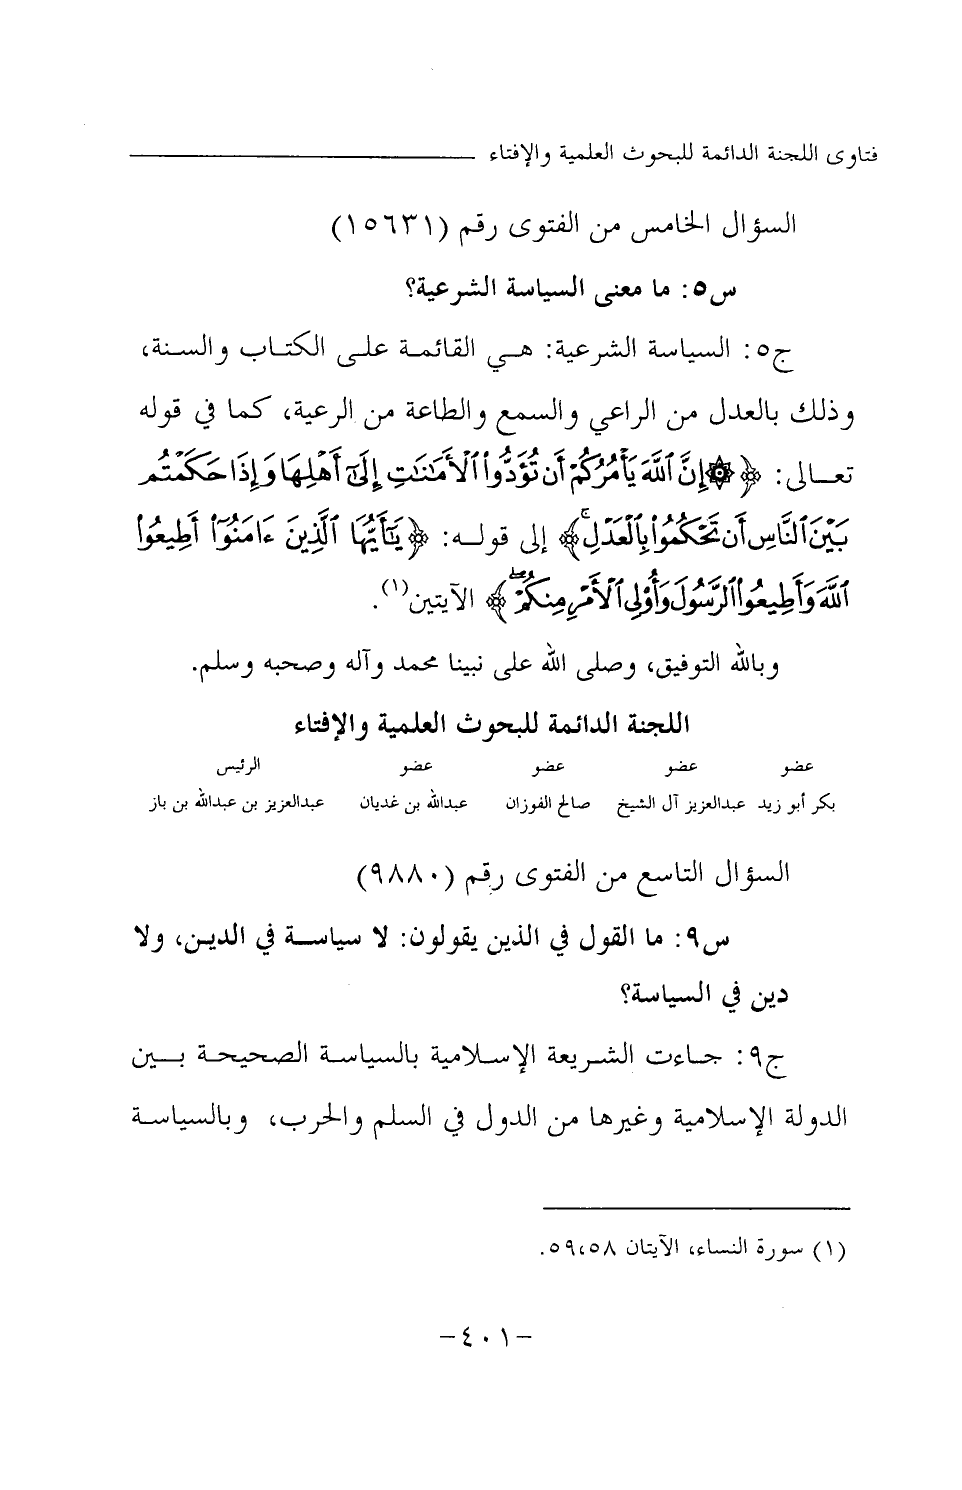 فتاوى اللجنة الدائمة للبحوث العلمية والإفتاء
السؤال الخامس من الفتوى رقم (١٥٦٣١)
س٥: ما معنى السياسة الشرعية؟
ج٥: السياسة الشرعية: هـي القائمة على الكتاب والسنة،
وذلك بالعدل من الراعي والسمع والطاعة من الرعية، كما في قوله
تعالى: ﴿ ۞ إِنَّ ٱللَّهَ يَأْمُرُكُمْ أَن تُؤَدُّوا۟ ٱلْأَمَـٰنَـٰتِ إِلَىٰٓ أَهْلِهَا وَإِذَا حَكَمْتُم
بَيْنَ ٱلنَّاسِ أَن تَحْكُمُوا۟ بِٱلْعَدْلِ ۚ ﴾ إلى قوله: ﴿ يَـٰٓأَيُّهَا ٱلَّذِينَ ءَامَنُوٓا۟ أَطِيعُوا۟
ٱللَّهَ وَأَطِيعُوا۟ ٱلرَّسُولَ وَأُو۟لِى ٱلْأَمْرِ مِنكُمْ ۖ ﴾ الآيتين(١).
وبالله التوفيق، وصلى الله على نبينا محمد وآله وصحبه وسلم.
اللجنة الدائمة للبحوث العلمية والإفتاء
عضو عضو عضو عضو الرئيس
بكر أبو زيد عبدالعزيز آل الشيخ صالح الفوزان عبدالله بن غديان عبدالعزيز بن عبدالله بن باز
السؤال التاسع من الفتوى رقم (٩٨٨٠)
س٩: ما القول في الذين يقولون: لا سياسة في الدين، ولا
دين في السياسة؟
ج٩: جاءت الشريعة الإسلامية بالسياسة الصحيحة بين
الدولة الإسلامية وغيرها من الدول في السلم والحرب، وبالسياسة
(١) سورة النساء، الآيتان ٥٩،٥٨.
-٤٠١-